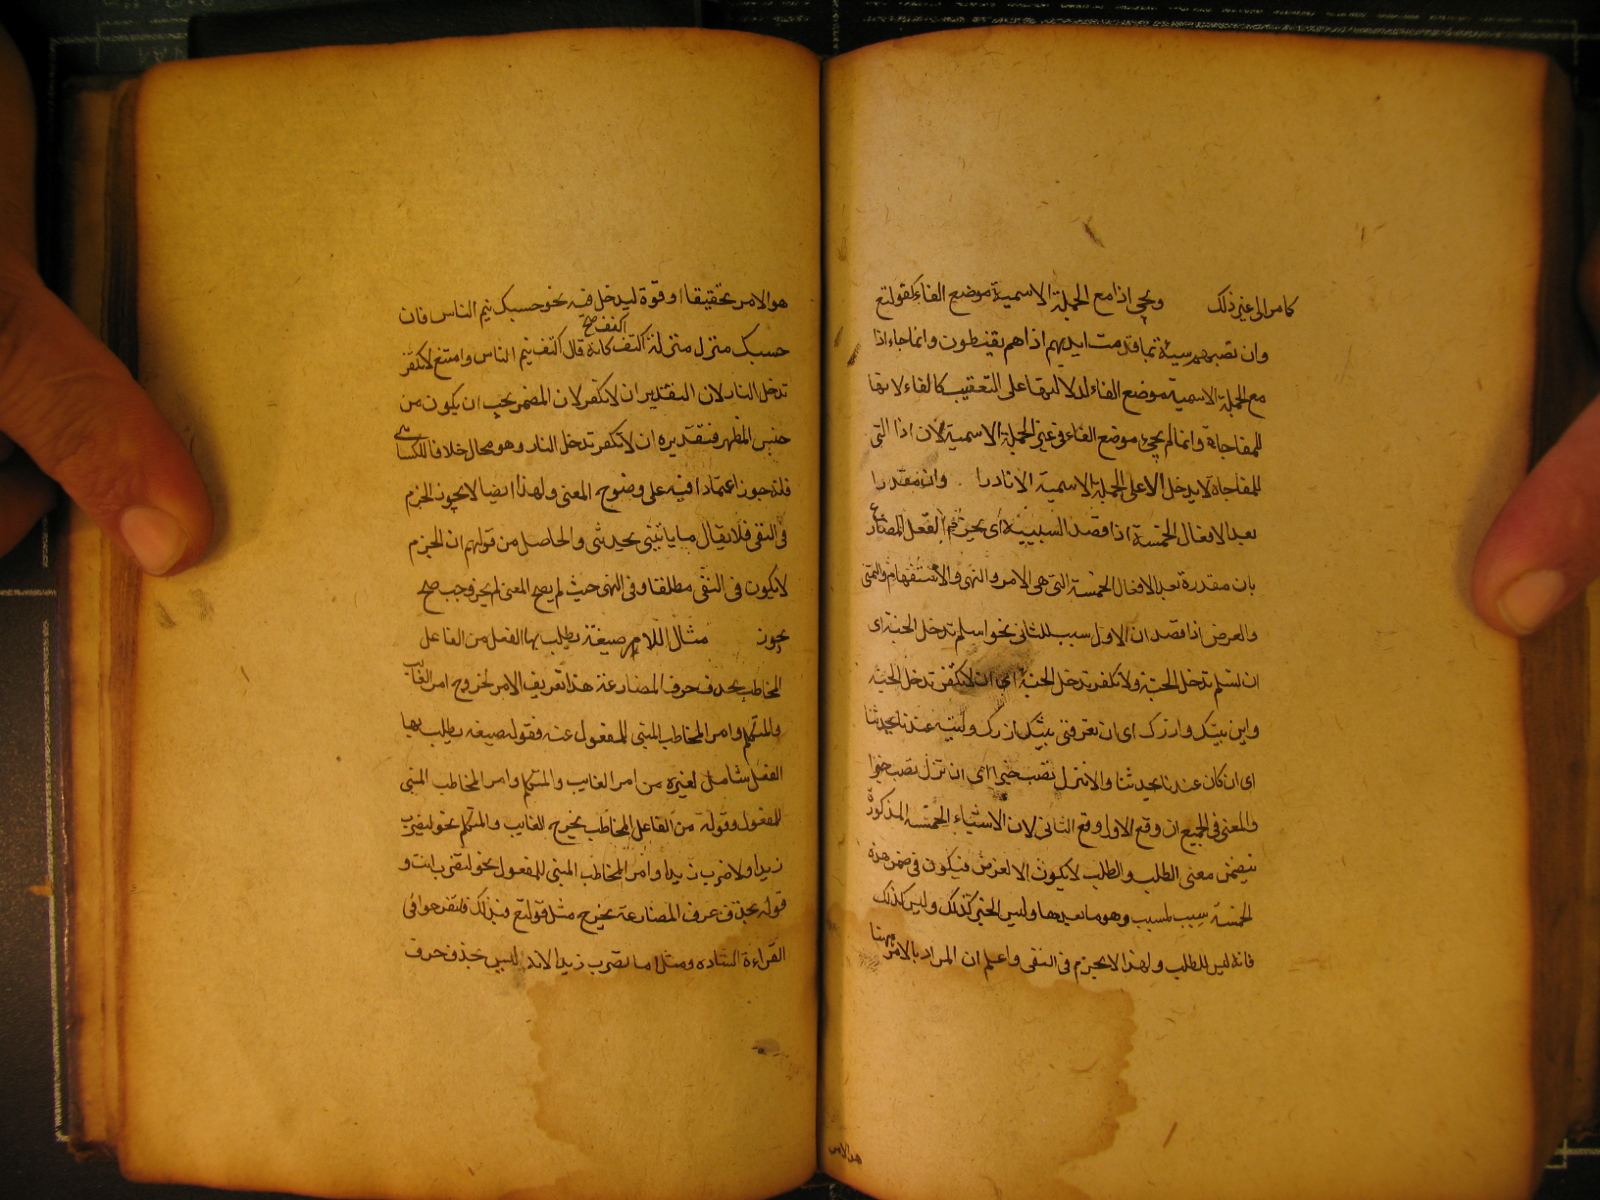 كامر الى غير ذلك ويجئ اذا مع الجملة الاسمية موضع الفاء كقوله تع
وان تصبهم سيئة بما قدمت ايديهم اذا هم يقنطون وانما جاء اذا
مع الجملة الاسمية موضع الفاء لدلالتها على التعقيب كالفاء لانها
للمفاجاة وانما لم يجئ موضع الفاء في غير الجملة الاسمية لان اذا التي
للمفاجاة لا يدخل الا على الجملة الاسمية الا نادرا وان مقدرا
بعد الافعال الخمسة اذا قصد السببية اى يجزم الفعل المضارع
بان مقدرة بعد الافعال الخمسة التي هي الامر والنهى والاستفهام والتمنى
والعرض اذا قصد ان الاول سبب للثانى نحو اسلم تدخل الجنة اى
ان تسلم تدخل الجنة ولا تكفر تدخل الجنة اى ان لا تكفر تدخل الجنة
واين بيتك وازرك اى ان تعرفنى بيتك ازرك وليته عندنا يحدثنا
اى ان كان عندنا يحدثنا والا تنزل تصب خيرا اى ان تنزل تصب خيرا
والمعنى في الجميع ان وقع الاول وقع الثانى لان الاشياء الخمسة المذكورة
يتضمن معنى الطلب والطلب لا يكون الا لغرض فيكون في ضمن هذه
الخمسة سبب لمسبب وهو ما بعدها وليس الخبر كذلك وليس كذلك
فانه ليس للطلب ولهذا لا يجزم في النفى واعلم ان المراد بالامر ههنا
هو الامر
هو الامر تحقيقا او قوة ليدخل فيه نحو حسبك ينم الناس فان
حسبك منزل منزلة اكتف كانه قال اكتف ينم الناس وامتنع لا تكفر
اكفف صح
تدخل النار لان التقدير ان لا تكفر لان المضمر يجب ان يكون من
جنس المظهر فتقديره ان لا تكفر تدخل النار وهو محال خلافا للكسائى
فانه جوز اعتمادا فيه على وضوح المعنى ولهذا ايضا لا يجوز الجزم
في النفى فلا يقال ما ياتينى يحدثنى والحاصل من قولهم ان الجزم
لا يكون في النفى مطلقا وفى النهى حيث لم يصح المعنى لم يجز وحيث صح
يجوز مثال اللام صيغة يطلب بها الفعل من الفاعل
المخاطب بحذف حرف المضارعة هذا تعريف الامر لخروج امر الغائب
والمتكلم وامر المخاطب المبنى للمفعول عنه فقوله صيغة يطلب بها
الفعل شامل لغيره من امر الغايب والمتكلم وامر المخاطب المبنى
للمفعول وقوله من الفاعل المخاطب يخرج الغايب والمتكلم نحو ليضرب
زيد ولاضرب زيدا وامر المخاطب المبنى للمفعول نحو لتضرب انت و
قوله بحذف حرف المضارعة يخرج مثل قوله تع فبذلك فلتفرحوا في
القراءة الشاذه ومثل اما تضرب زيدا لانه ليس بحذف حرف